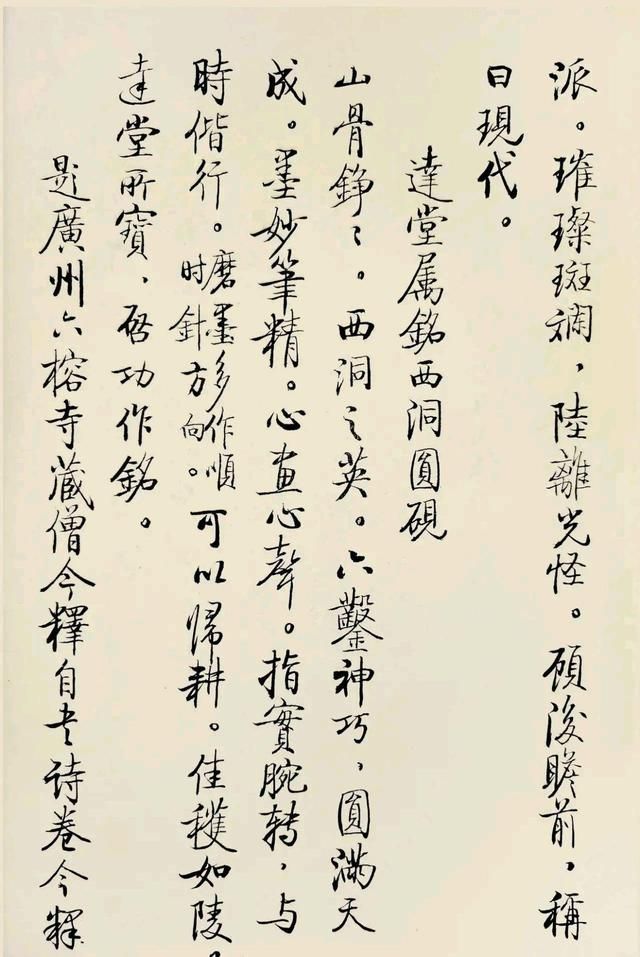 派。璀璨斑斕，陸離光怪。顧後瞻前，稱
曰現代。
達堂属銘西洞圓硯
山骨錚〻。西洞之英。六鑿神巧，圓滿天
成。墨妙筆精。心畫心聲。指實腕转，与
時偕行。磨墨多作順时針方向。可以歸耕。佳穫如陵，
達堂所寶，啓功作銘。
題廣州六榕寺藏僧今釋自书诗卷今釋